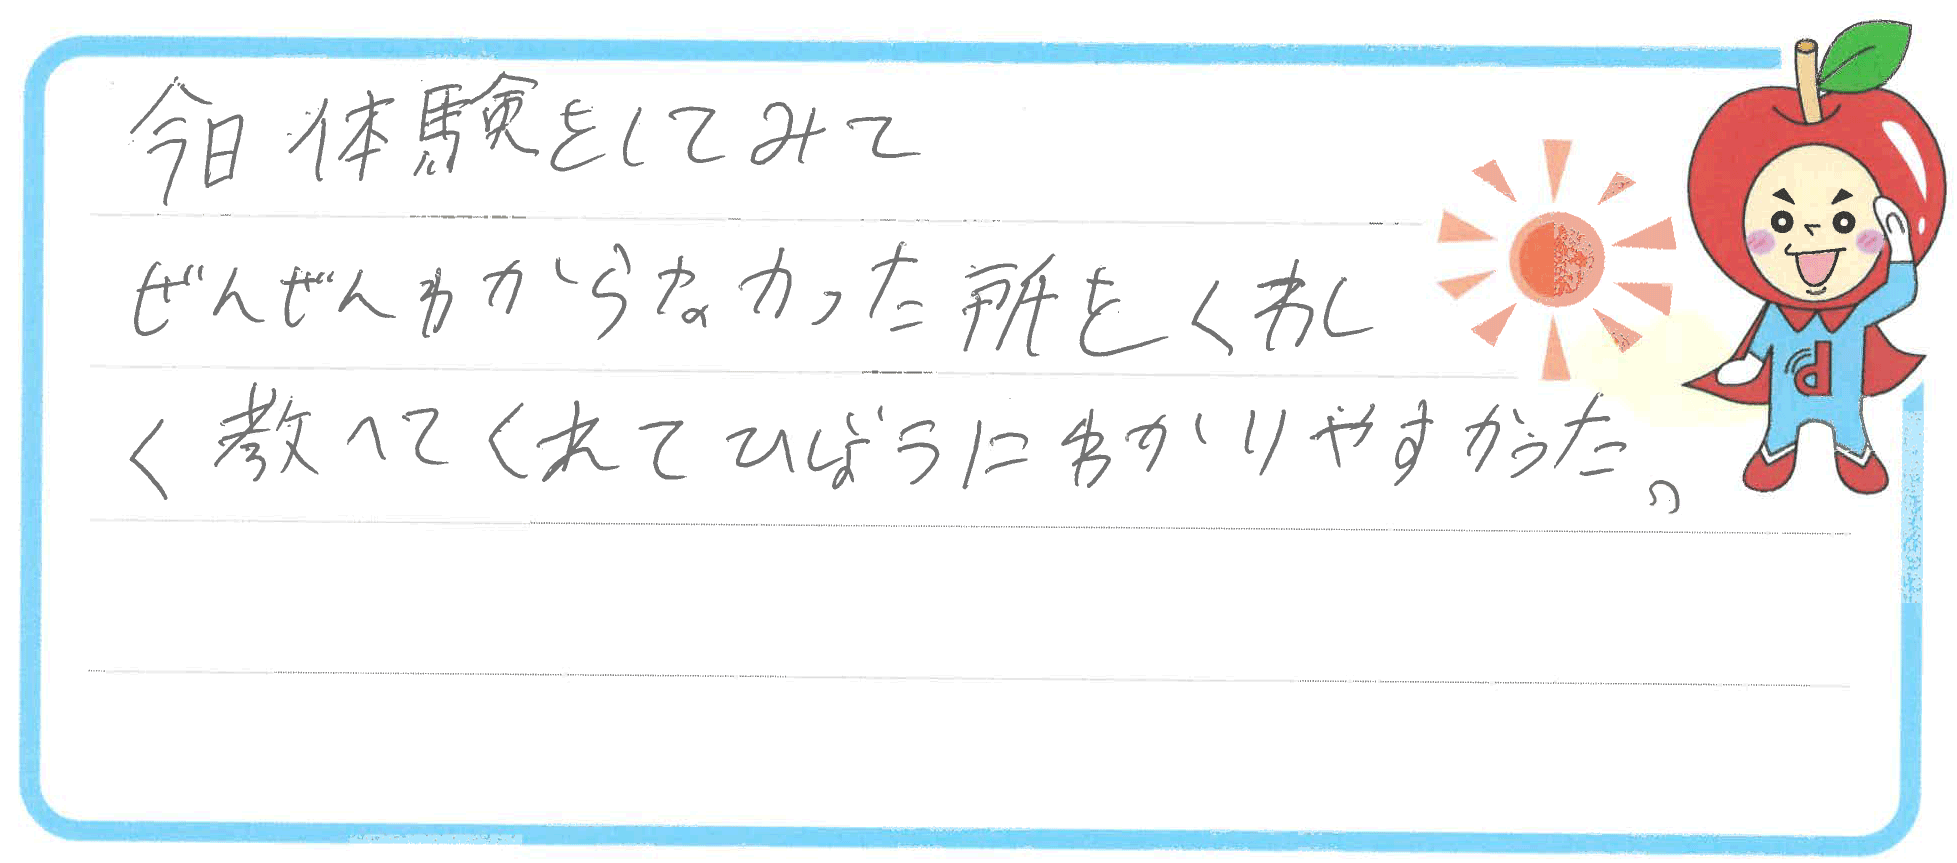 今日体験をしてみて
ぜんぜんわからなかった所をくわし
く教へてくれてひじょうにわかりやすかった。
d